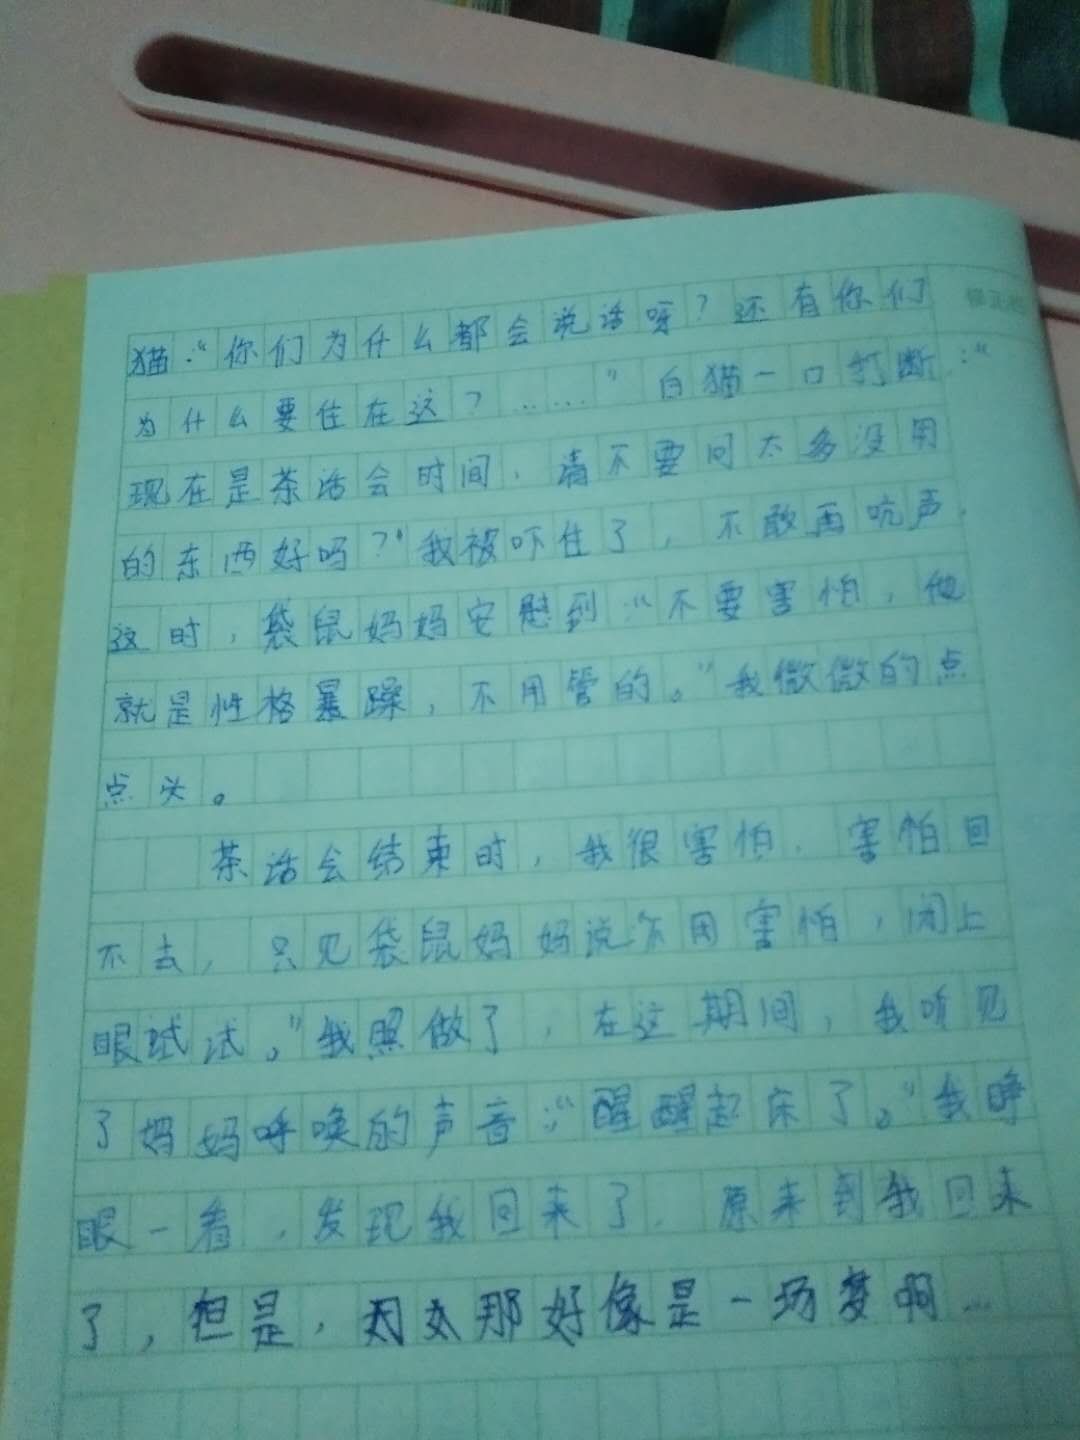 猫:“你们为什么都会说话呀?还有你们
为什么要住在这?……”白猫一口打断:“
现在是茶话会时间,请不要问太多没用
的东西好吗?”我被吓住了,不敢再吭声.
这时,袋鼠妈妈安慰到:“不要害怕,他
就是性格暴躁,不用管的。”我微微的点
点头。
茶话会结束时,我很害怕.害怕回
不去,只见袋鼠妈妈说“不用害怕,闭上
眼试试。”我照做了,在这期间,我听见
了妈妈呼唤的声音:“醒醒起床了。”我睁
眼一看,发现我回来了.原来到我回来
了,但是,那好像是一场梦啊…